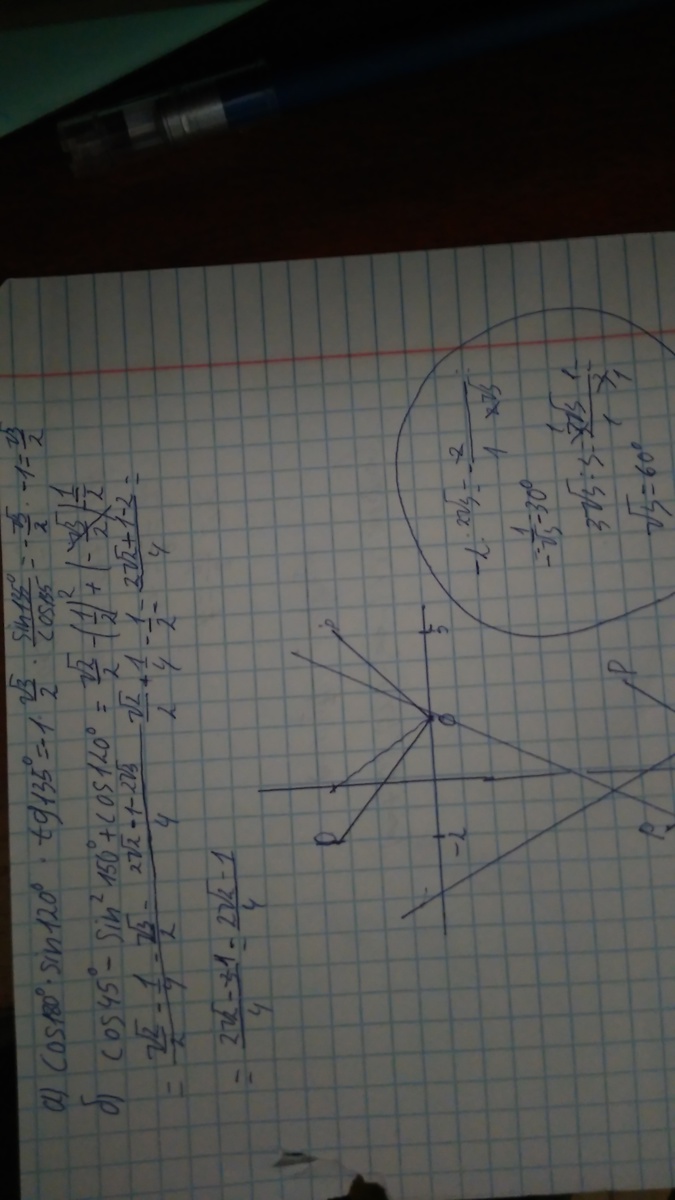 а) cos180°·sin120°·tg135°=-1·√3/2·sin135°/cos135=-√3/2·-1=√3/2
б) cos45°-sin²150°+cos120°=√2/2-(1/2)²+(-√3/2)1/2
=√2/2-1/4-√3/2=2√2-1-2√3/4 √2/2+1/4-1/2=2√2+1-2/4=
=2√2-+1/4=2√2-1/4
-2
0
5
P
P
P
-2·2√3=-2/1·2√3
-1/√3=30°
3√3:3=
√3=60°